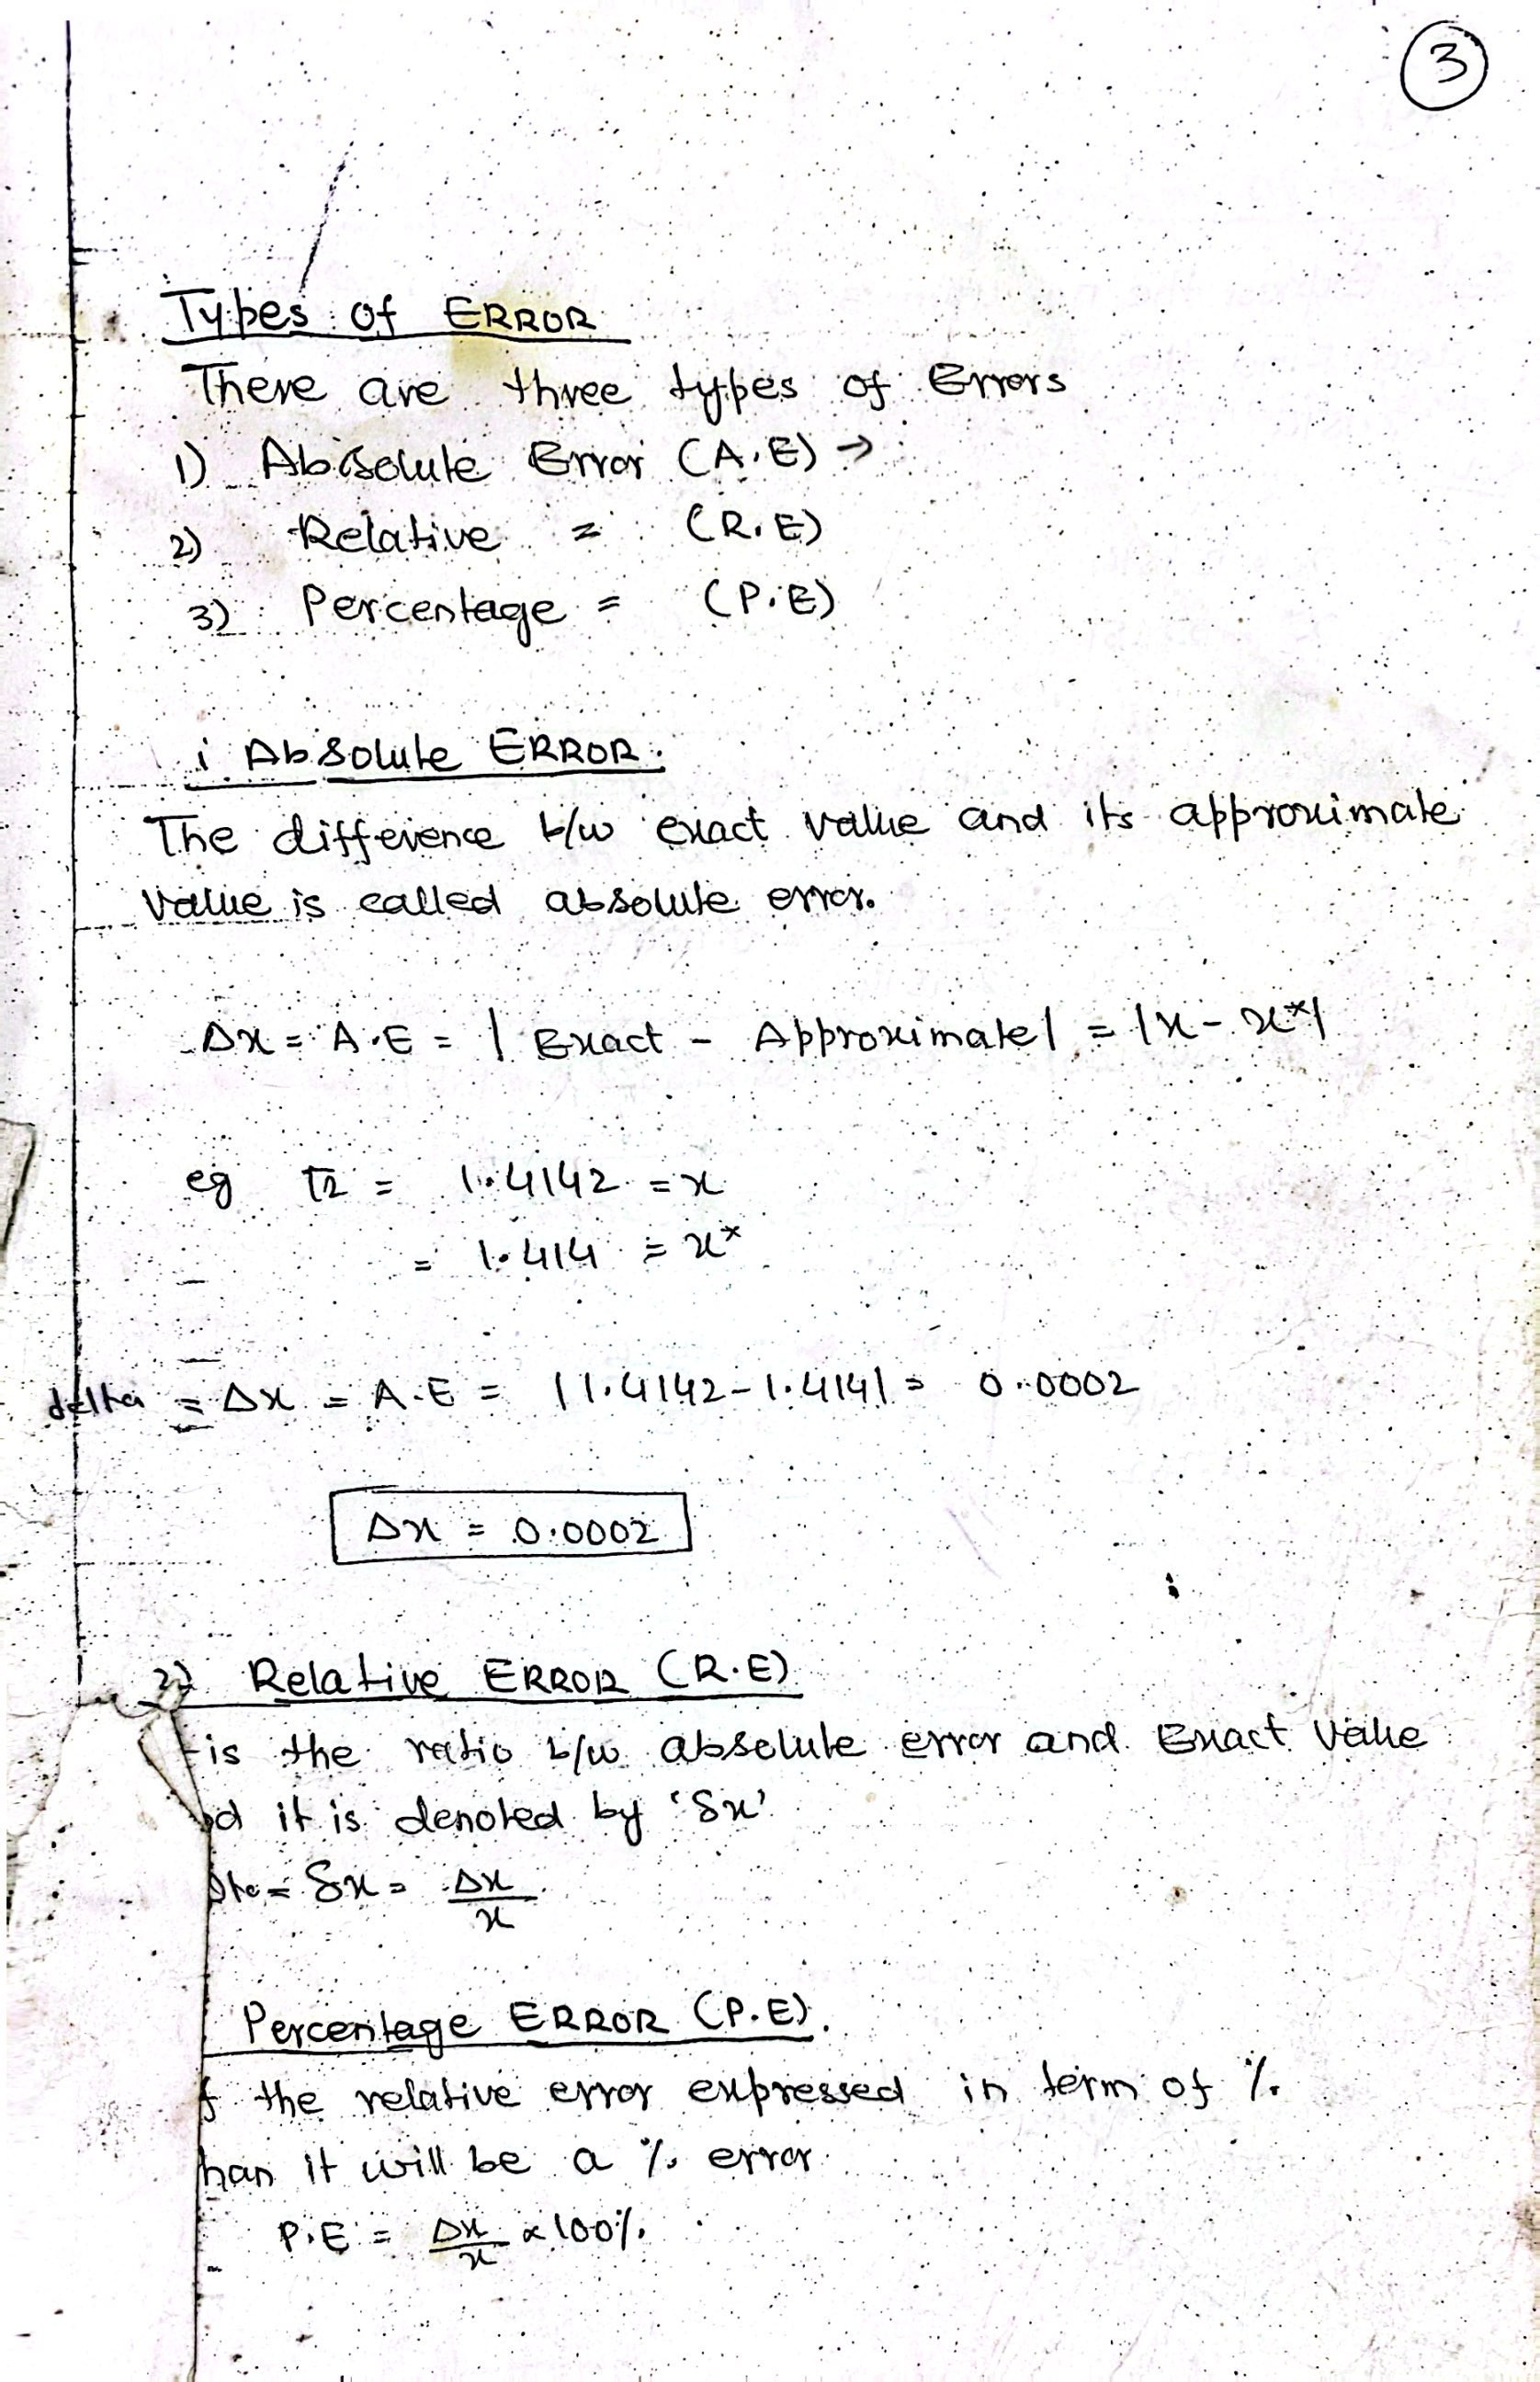 3
Types of ERROR
There are three types of Errors
1) Absolute Error (A.E) →
2) Relative = (R.E)
3) Percentage = (P.E)
i Absolute ERROR.
The difference b/w exact value and its approximate
value is called absolute error.
Δx = A.E = | Exact - Approximate| = |x - x*|
eg √2 = 1.4142 = x
= 1.414 = x*
delta = Δx = A.E = |1.4142-1.414| = 0.0002
Δx = 0.0002
2) Relative ERROR (R.E)
is the ratio b/w absolute error and Exact Value
d it is denoted by 'δx'
= δx = Δx/x
Percentage ERROR (P.E).
f the relative error expressed in term of %
han it will be a % error
P.E = Δx/x × 100%